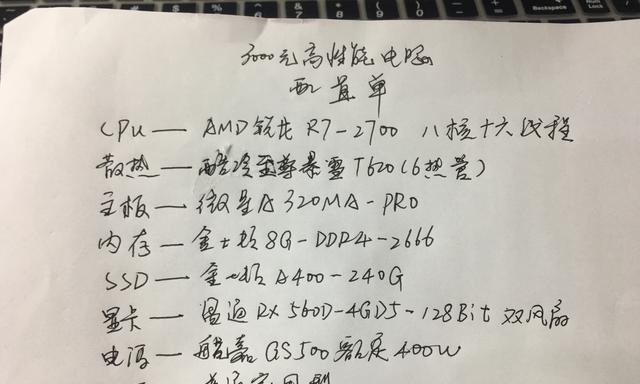 3000元高性能电脑
配置单
CPU — AMD锐龙 R7-2700 八核十六线程
散热 — 酷冷至尊暴雪T620(6热管)
主板 — 微星A320MA-PRO
内存 — 金士顿8G-DDR4-2666
SSD — 金士顿A400-240G
显卡 — 盈通RX 560D-4GD5-128Bit 双风扇
电源 — 航嘉GS500额定400W